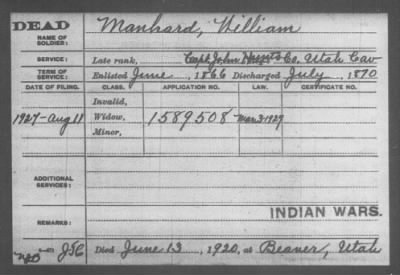 DEAD
NAME OF SOLDIER:
Manhard, William
SERVICE:
Late rank, Capt. John Co. Utah Cav
TERM OF SERVICE:
Enlisted June, 1866 Discharged July, 1870
DATE OF FILING. CLASS. APPLICATION NO. LAW. CERTIFICATE NO.
Invalid,
1927-Aug 11 Widow, 1589508 Mar 3-1927
Minor,
ADDITIONAL SERVICES:
INDIAN WARS.
REMARKS:
Died June 13, 1920, at Beaver, Utah